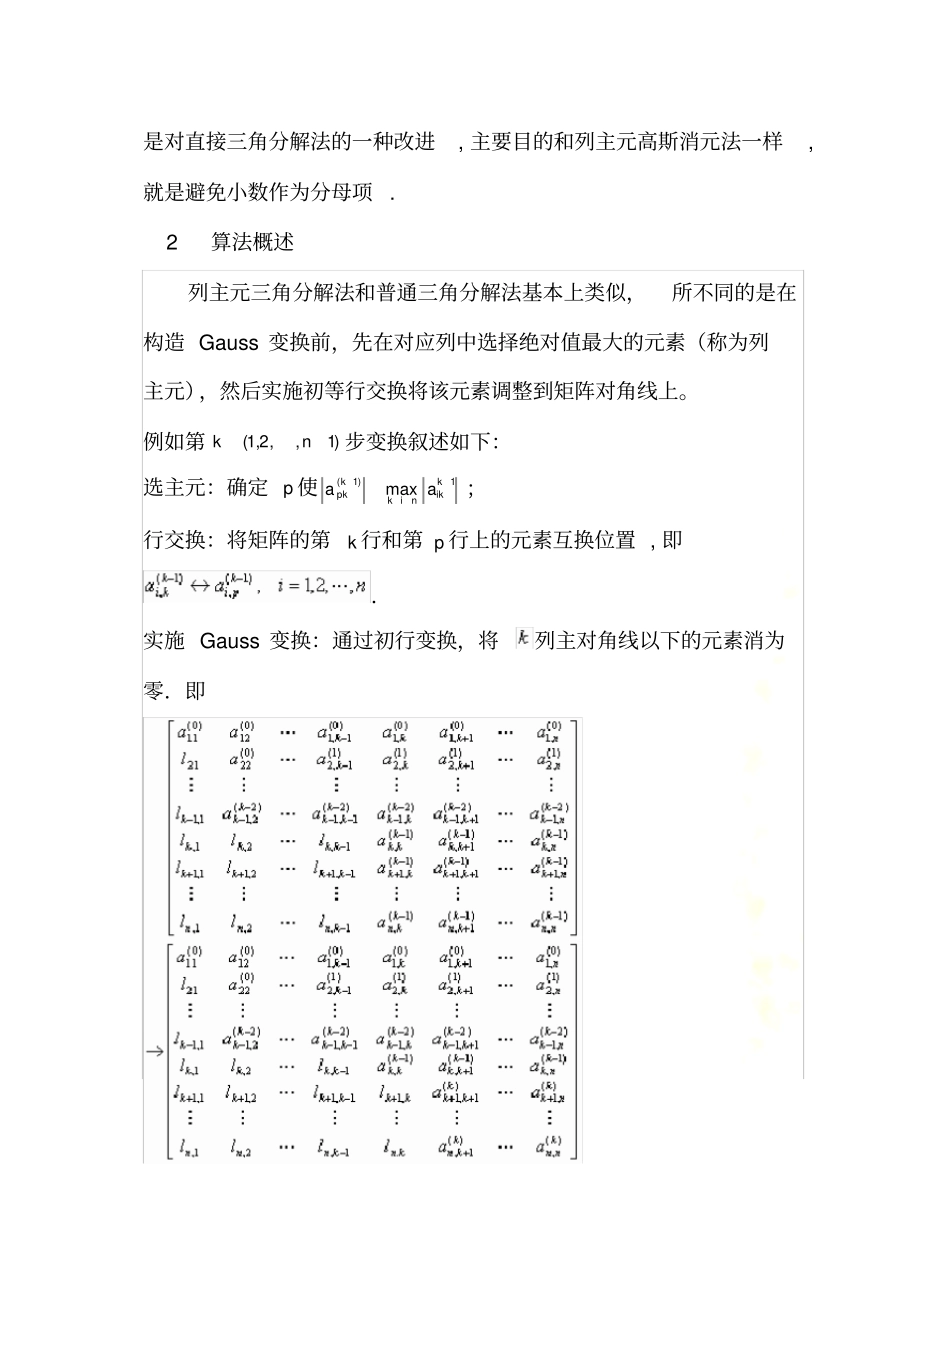 是对直接三角分解法的一种改进 , 主要目的和列主元高斯消元法一样 ,
就是避免小数作为分母项 .
2 算法概述
列主元三角分解法和普通三角分解法基本上类似， 所不同的是在
构造 Gauss 变换前，先在对应列中选择绝对值最大的元素（称为列
主元），然后实施初等行交换将该元素调整到矩阵对角线上。
例如第 k (1,2, ,n 1) 步变换叙述如下：
选主元：确定 p 使 |a_{pk}^{(k 1)}| max_{k i n} |a_{ik}^{k 1}| ；
行交换：将矩阵的第 k 行和第 p 行上的元素互换位置 , 即
a_{i,k}^{(k-1)} ↔ a_{i,p}^{(k-1)}, i = 1,2,⋯,n .
实施 Gauss 变换：通过初行变换，将 k 列主对角线以下的元素消为
零．即
a_{11}^{(0)} a_{12}^{(0)} ⋯ a_{1,k-1}^{(0)} a_{1,k}^{(0)} a_{1,k+1}^{(0)} ⋯ a_{1,n}^{(0)}
l_{21} a_{22}^{(0)} ⋯ a_{2,k-1}^{(1)} a_{2,k}^{(1)} a_{2,k+1}^{(1)} ⋯ a_{2,n}^{(1)}
⋮ ⋮ ⋮ ⋮ ⋮ ⋮
l_{k-1,1} a_{k-1,2}^{(k-2)} ⋯ a_{k-1,k-1}^{(k-2)} a_{k-1,k}^{(k-2)} a_{k-1,k+1}^{(k-2)} ⋯ a_{k-1,n}^{(k-2)}
l_{k,1} l_{k,2} ⋯ l_{k,k-1} a_{k,k}^{(k-1)} a_{k,k+1}^{(k-1)} ⋯ a_{k,n}^{(k-1)}
l_{k+1,1} l_{k+1,2} ⋯ l_{k+1,k-1} a_{k+1,k}^{(k-1)} a_{k+1,k+1}^{(k-1)} ⋯ a_{k+1,n}^{(k-1)}
⋮ ⋮ ⋮ ⋮ ⋮ ⋮
l_{n,1} l_{n,2} ⋯ l_{n,k-1} a_{n,k}^{(k-1)} a_{n,k+1}^{(k-1)} ⋯ a_{n,n}^{(k-1)}
a_{11}^{(0)} a_{12}^{(0)} ⋯ a_{1,k-1}^{(0)} a_{1,k}^{(0)} a_{1,k+1}^{(0)} ⋯ a_{1,n}^{(0)}
l_{21} a_{22}^{(0)} ⋯ a_{2,k-1}^{(1)} a_{2,k}^{(1)} a_{2,k+1}^{(1)} ⋯ a_{2,n}^{(1)}
⋮ ⋮ ⋮ ⋮ ⋮ ⋮
l_{k-1,1} a_{k-1,2}^{(k-2)} ⋯ a_{k-1,k-1}^{(k-2)} a_{k-1,k}^{(k-2)} a_{k-1,k+1}^{(k-2)} ⋯ a_{k-1,n}^{(k-2)}
→ l_{k,1} l_{k,2} ⋯ l_{k,k-1} a_{k,k}^{(k-1)} a_{k,k+1}^{(k-1)} ⋯ a_{k,n}^{(k-1)}
l_{k+1,1} l_{k+1,2} ⋯ l_{k+1,k-1} l_{k+1,k} a_{k+1,k+1}^{(k)} ⋯ a_{k+1,n}^{(k)}
⋮ ⋮ ⋮ ⋮ ⋮ ⋮
l_{n,1} l_{n,2} ⋯ l_{n,k-1} l_{n,k} a_{n,k+1}^{(k)} ⋯ a_{n,n}^{(k)}